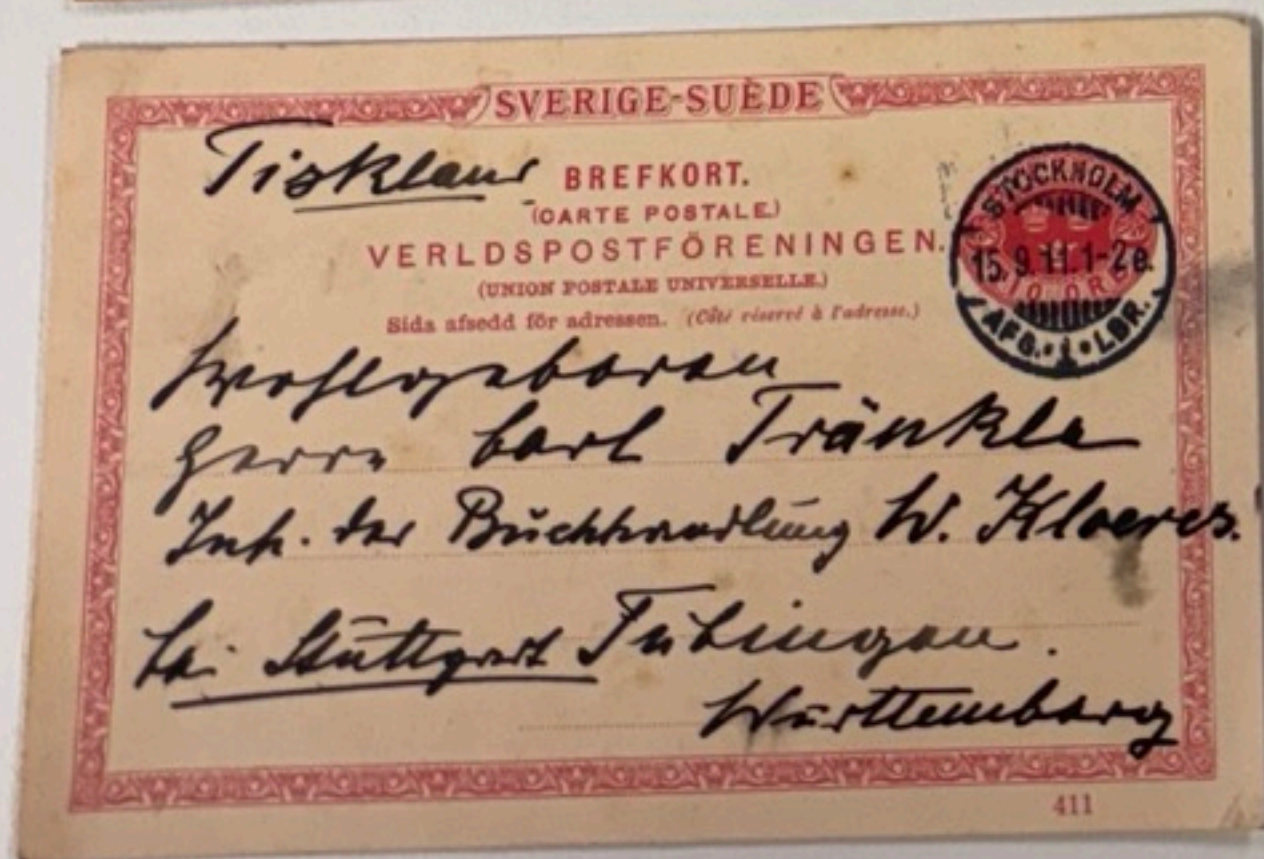 SVERIGE-SUÈDE
Tiskland
BREFKORT.
(CARTE POSTALE.)
VERLDSPOSTFÖRENINGEN.
(UNION POSTALE UNIVERSELLE.)
Sida afsedd för adressen. (Côté réservé à l'adresse.)
STOCKHOLM
15.9.11.1-2e.
AFG. 1 LBR.
10 ÖRE
Wohlgeboren
Herrn Carl Tränkle
Inh. der Buchhandlung W. Kloeres.
bei Stuttgart Tübingen.
Württemberg
411